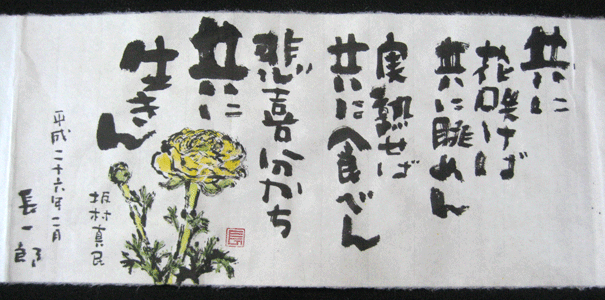 共に
花咲けば
共に眺めん
実熟せば
共に食べん
悲喜分かち
共に
生きん
坂村真民
平成二十六年二月
長一郎
長